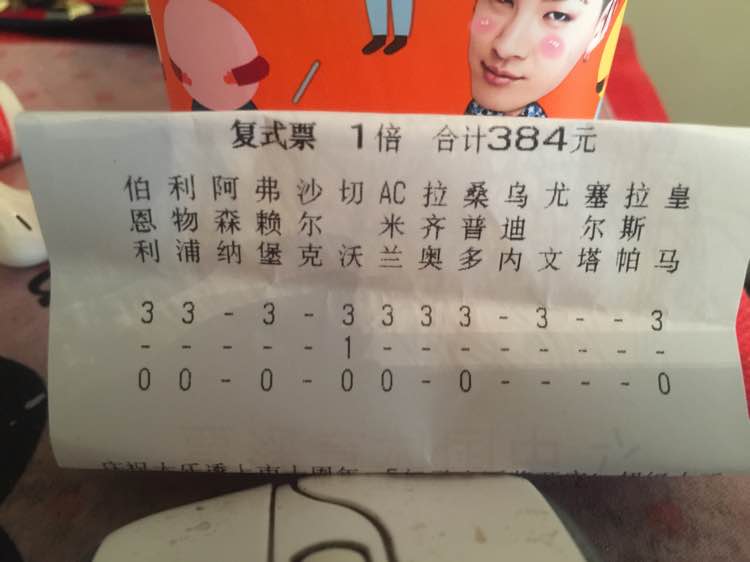 复式票 1倍 合计384元
伯 利 阿 弗 沙 切 AC 拉 桑 乌 尤 塞 拉 皇
恩 物 森 赖 尔 米 齐 普 迪 尔 斯
利 浦 纳 堡 克 沃 兰 奥 多 内 文 塔 帕 马
3 3 - 3 - 3 3 3 3 - 3 - - 3
- - - - - 1 - - - - - - - -
0 0 - 0 - 0 0 - 0 - - - - 0